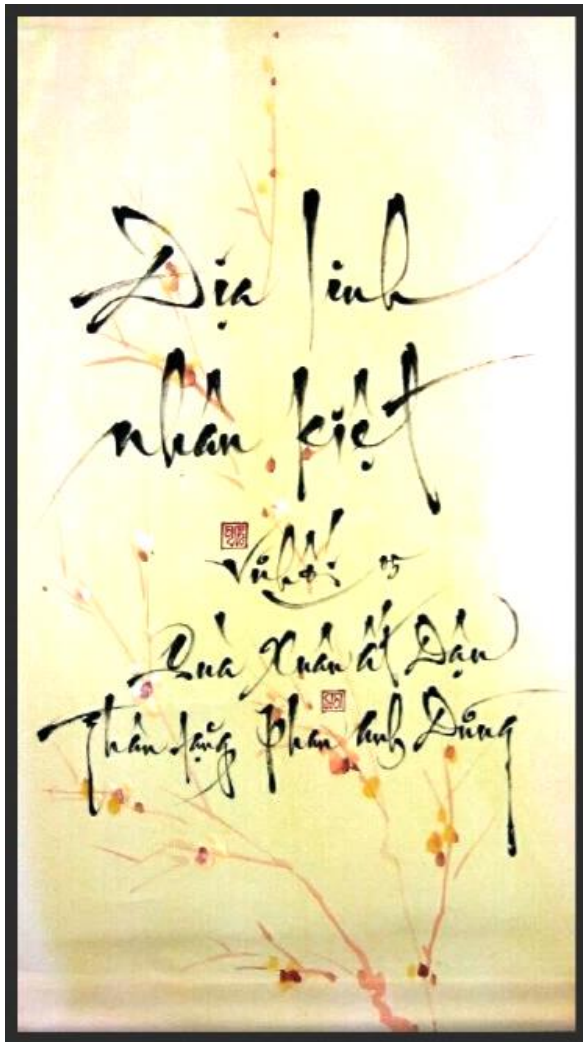 Địa linh
nhân kiệt
Vũ Hối 05
Quà Xuân ất Dậu
Thân tặng Phan anh Dũng